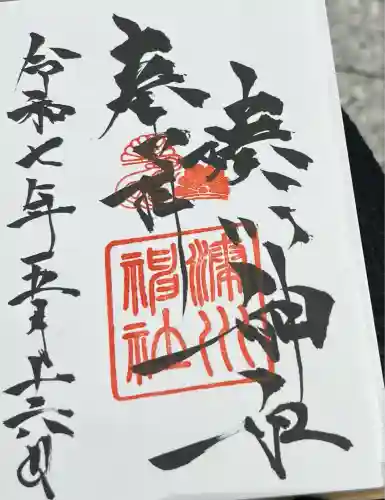 湊川神社
奉拝
湊川
神社
令和七年五月十六日